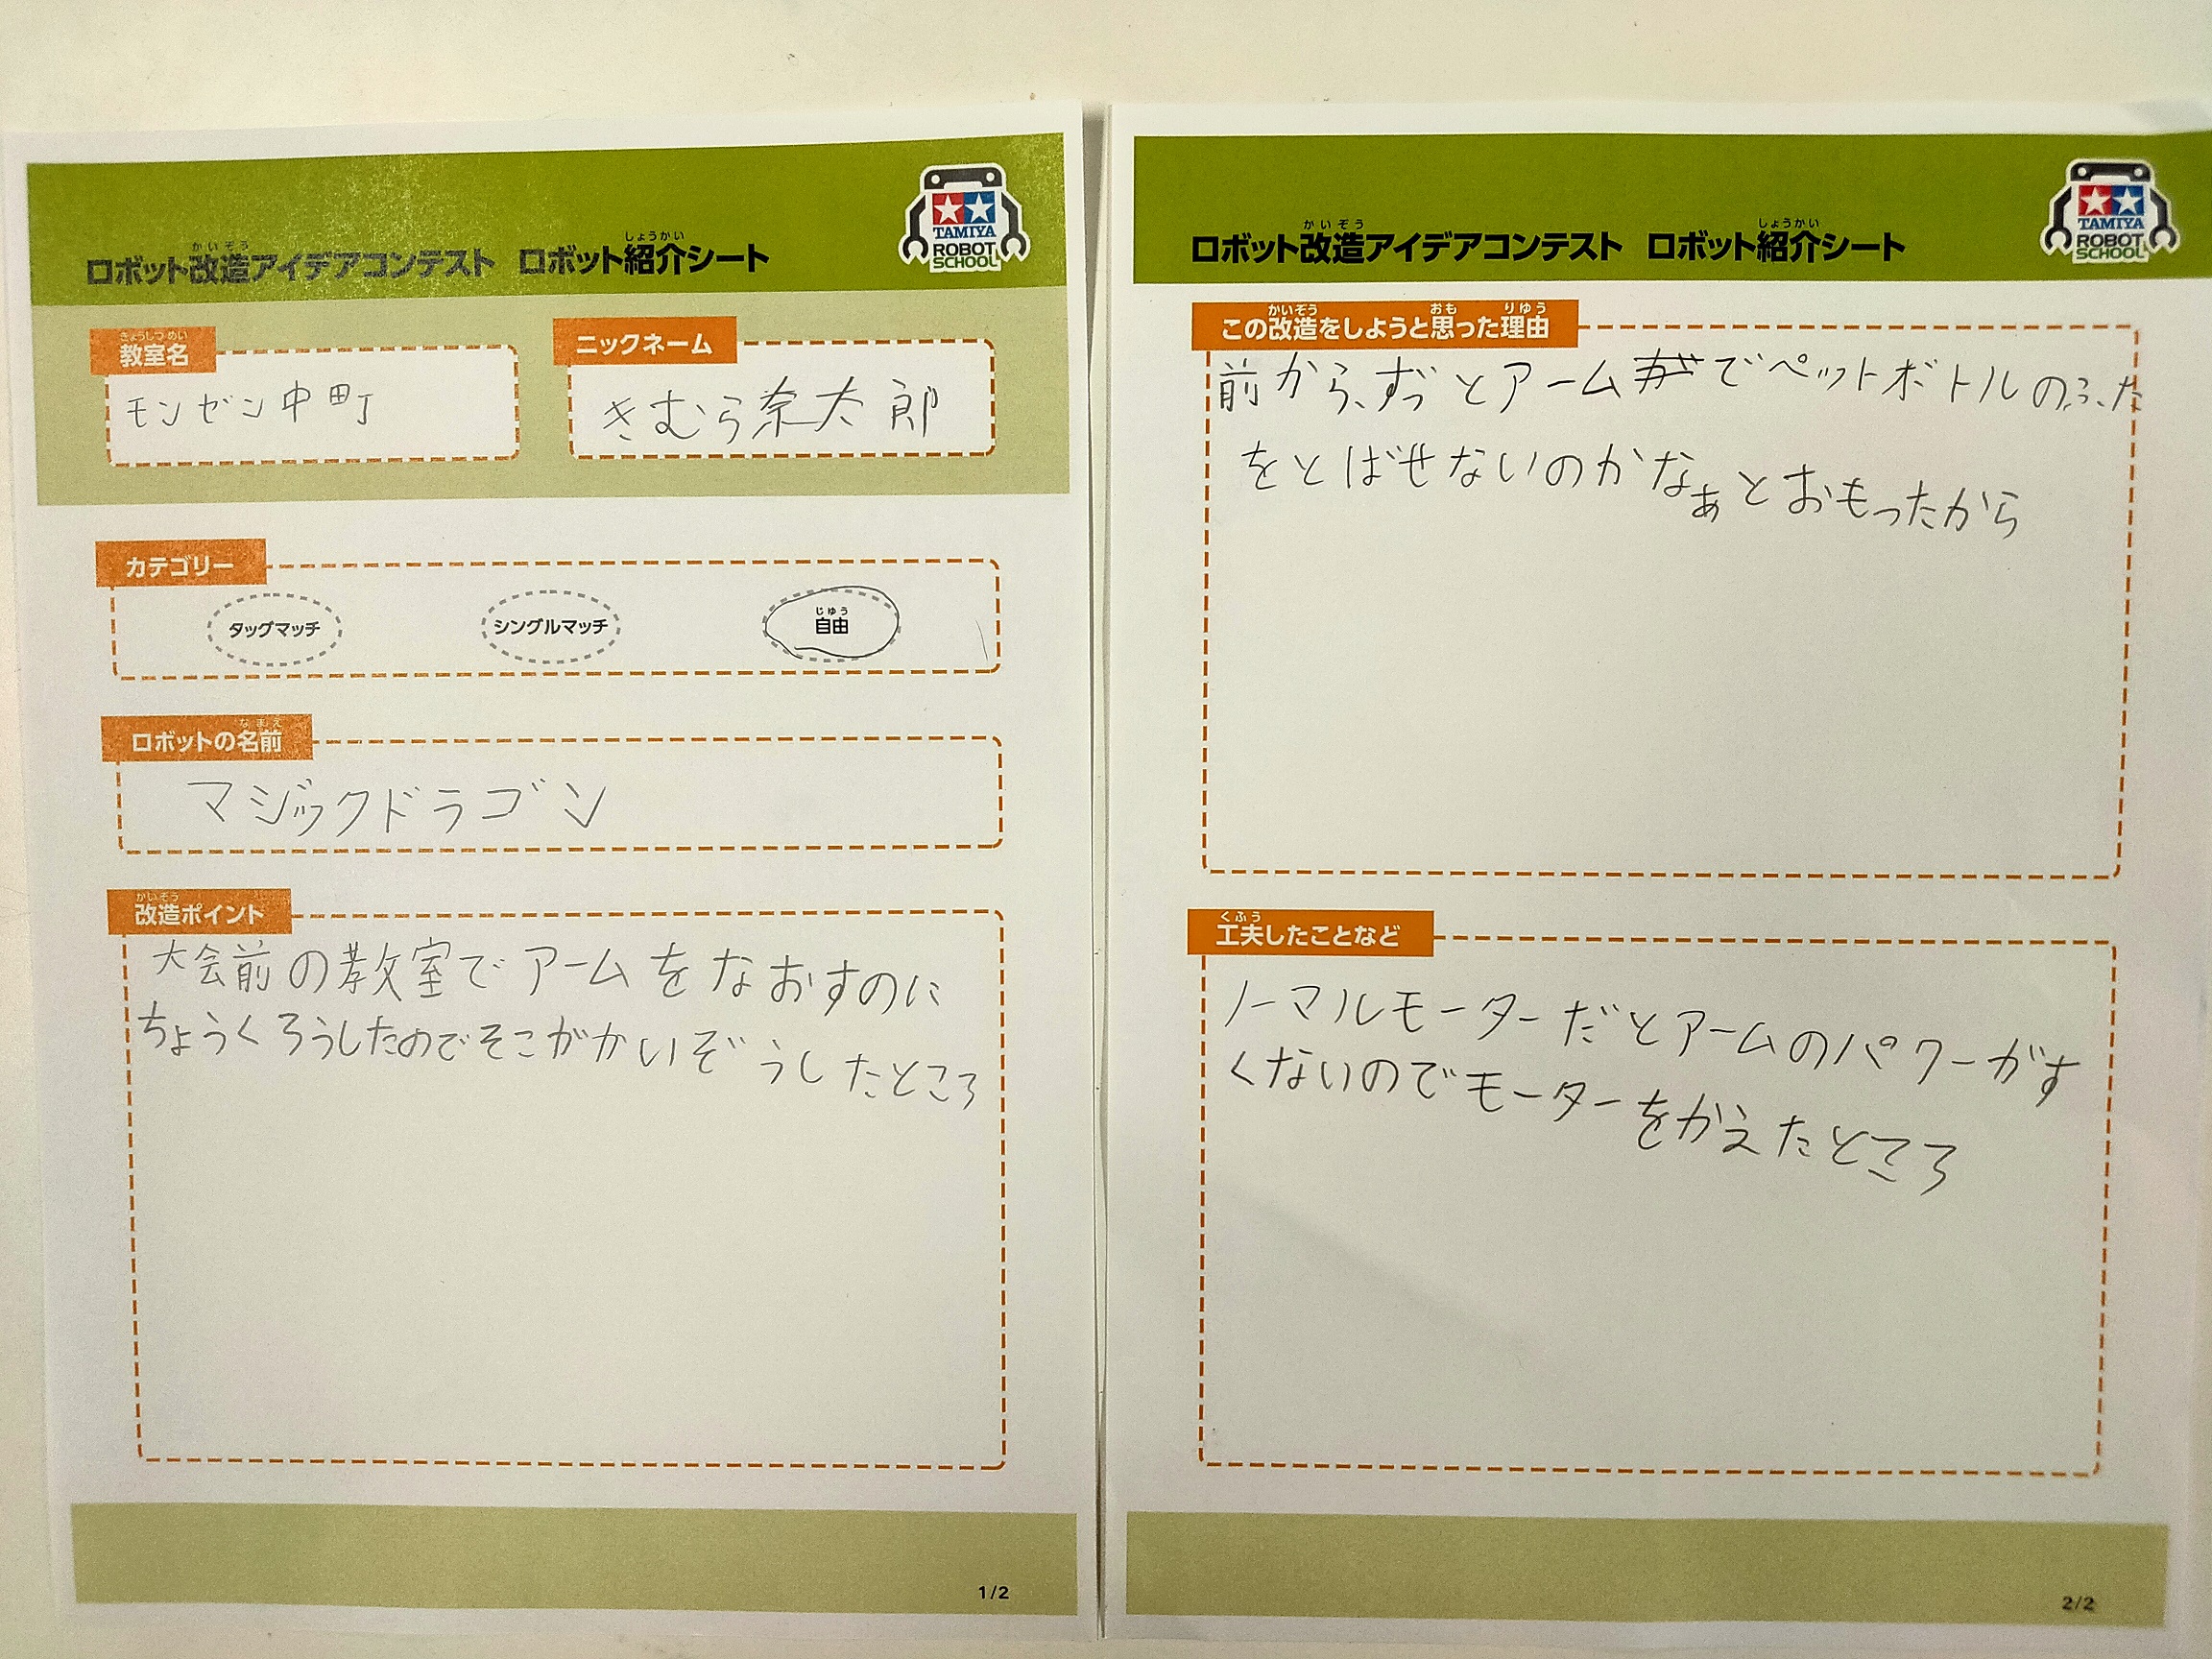 かいぞう しょうかい
ロボット改造アイデアコンテスト ロボット紹介シート
TAMIYA
ROBOT
SCHOOL
きょうしつめい
教室名
モンゼン中町
ニックネーム
きむら奈太郎
カテゴリー
タッグマッチ
シングルマッチ
じゆう
自由
なまえ
ロボットの名前
マジックドラゴン
かいぞう
改造ポイント
大会前の教室でアームをなおすのに
ちょうくろうしたのでそこがかいぞうしたところ
1/2
かいぞう しょうかい
ロボット改造アイデアコンテスト ロボット紹介シート
TAMIYA
ROBOT
SCHOOL
かいぞう おも りゆう
この改造をしようと思った理由
前から、ずっとアームでペットボトルのふた
をとばせないのかなぁとおもったから
くふう
工夫したことなど
ノーマルモーターだとアームのパワーがす
くないのでモーターをかえたところ
2/2